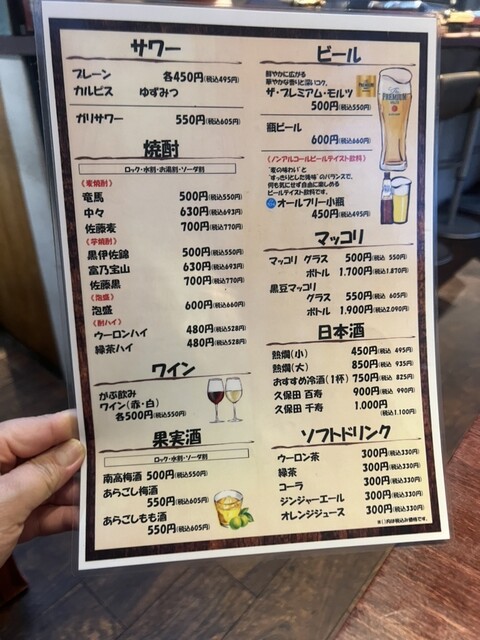 サワー
プレーン 各450円(税込495円)
カルピス ゆずみつ
ガリサワー 550円(税込605円)
焼酎
ロック・水割・お湯割・ソーダ割
(麦焼酎)
竜馬 500円(税込550円)
中々 630円(税込693円)
佐藤麦 700円(税込770円)
(芋焼酎)
黒伊佐錦 500円(税込550円)
富乃宝山 630円(税込693円)
佐藤黒 700円(税込770円)
(泡盛)
泡盛 600円(税込660円)
(酎ハイ)
ウーロンハイ 480円(税込528円)
緑茶ハイ 480円(税込528円)
ワイン
がぶ飲み
ワイン(赤・白)
各500円(税込550円)
果実酒
ロック・水割・ソーダ割
南高梅酒 500円(税込550円)
あらごし梅酒
550円(税込605円)
あらごしもも酒
550円(税込605円)
ビール
鮮やかに広がる
華やかな香りと深いコク。
ザ・プレミアム・モルツ
500円(税込550円)
PREMIUM
瓶ビール
600円(税込660円)
(ノンアルコールビールテイスト飲料)
"麦の味わい"と
"すっきりとした後味"のバランスで、
何も気にせず自由に楽しめる
ビールテイスト飲料です。
オールフリー小瓶
450円(税込495円)
マッコリ
マッコリ グラス 500円(税込 550円)
ボトル 1.700円(税込1.870円)
黒豆マッコリ
グラス 550円(税込 605円)
ボトル 1.900円(税込2.090円)
日本酒
熱燗(小) 450円(税込 495円)
熱燗(大) 850円(税込 935円)
おすすめ冷酒(1杯) 750円(税込 825円)
久保田 百寿 900円(税込 990円)
久保田 千寿 1.000円
(税込1.100円)
ソフトドリンク
ウーロン茶 300円(税込330円)
緑茶 300円(税込330円)
コーラ 300円(税込330円)
ジンジャーエール 300円(税込330円)
オレンジジュース 300円(税込330円)
※( )内は税込み価格です。